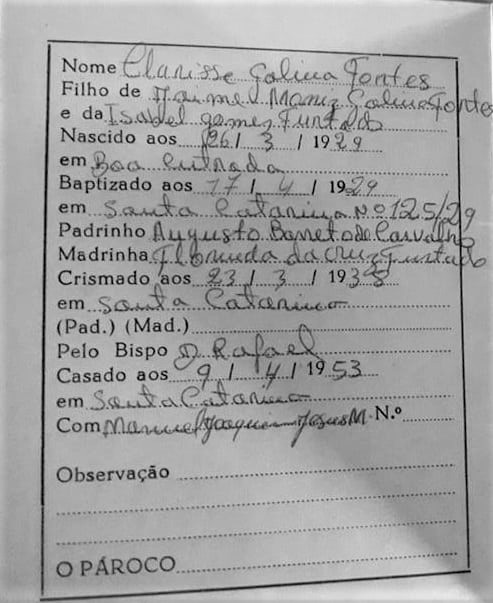 Nome Clarisse Galina Fontes
Filho de Manuel Moniz Galina Fontes
e da Isabel gomes Furtado
Nascido aos 26 / 3 / 1929
em Boa Entrada
Baptizado aos 17 / 4 / 1929
em Santa Catarina Nº 125/29
Padrinho Augusto Barreto de Carvalho
Madrinha Florinda da Cruz Furtado
Crismado aos 23 / 3 / 1938
em Santa Catarina
(Pad.) (Mad.)
Pelo Bispo D. Rafael
Casado aos 9 / 4 / 1953
em Santa Catarina
Com Manuel Joaquim Jesus M. N.º
Observação
O PÁROCO